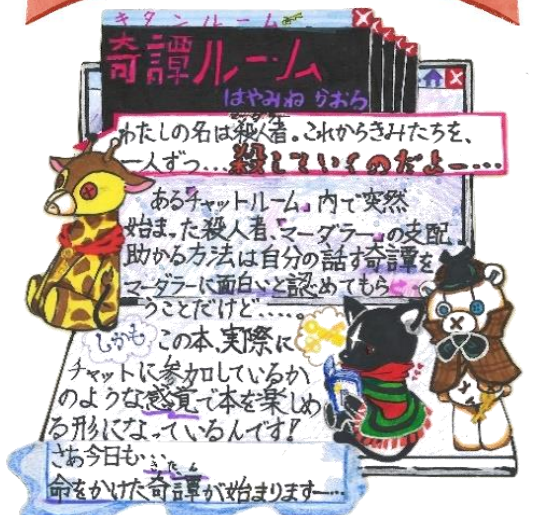 キタンルーム
奇譚ルーム
はやみね かおる
わたしの名は殺人者。これからきみたちを、
一人ずつ…殺していくのだよー…
あるチャットルーム内で突然
始まった殺人者、「マーダラー」の支配。
助かる方法は自分の話す奇譚を
マーダラーに面白いと認めてもら
うことだけど……。
しかも この本、実際に
チャットに参加しているか
のような感覚で本を楽しめ
る形になっているんです!
さあ今日も…
きたん
命をかけた奇譚が始まりますー…